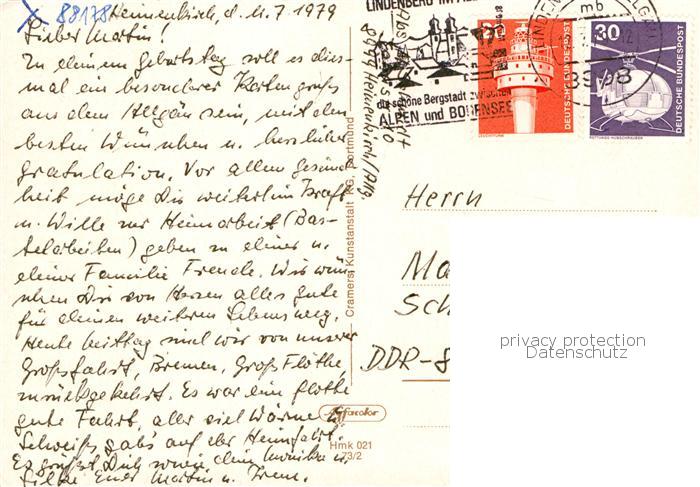 88178
Heimenkirch, d. 11.7 1979
Lieber Martin!
Zu deinem Geburtstag soll es dies-
mal ein besonderer Kartengruß
aus dem Allgäu sein, mit den
besten Wünschen u. herzlicher
Gratulation. Vor allem Gesund
heit möge Dir weiterhin Kraft
u. Wille zur Heimarbeit (Bas-
telarbeiten) geben zu deiner u.
deiner Familie Freude. Wir wün
schen Dir von Herzen alles gute
für deinen weiteren Lebensweg.
Heute Mittag sind wir von unserer
Großfahrt, Bremen, Groß Flöthe,
zurückgekehrt. Es war eine flotte
gute Fahrt, aller viel Wärme u.
Schweiß gabs auf der Heimfahrt.
Es grüßt Dich sowie dein Monika u.
Eure Martin u. Fren.
Abs.
8999 Heimenkirch/Allg
Cramers Kunstanstalt KG, Dortmund
Affacolor
Hmk 021
73/2
LINDENBERG IM
die schöne Bergstadt zwischen
ALPEN und BODENSEE
LINDEN
mb
8998
DEUTSCHE BUNDESPOST
LEUCHTTURM
30
DEUTSCHE BUNDESPOST
RETTUNGS-HUBSCHRAUBER
Herrn
Ma
Sch
DDR-8
privacy protection
Datenschutz